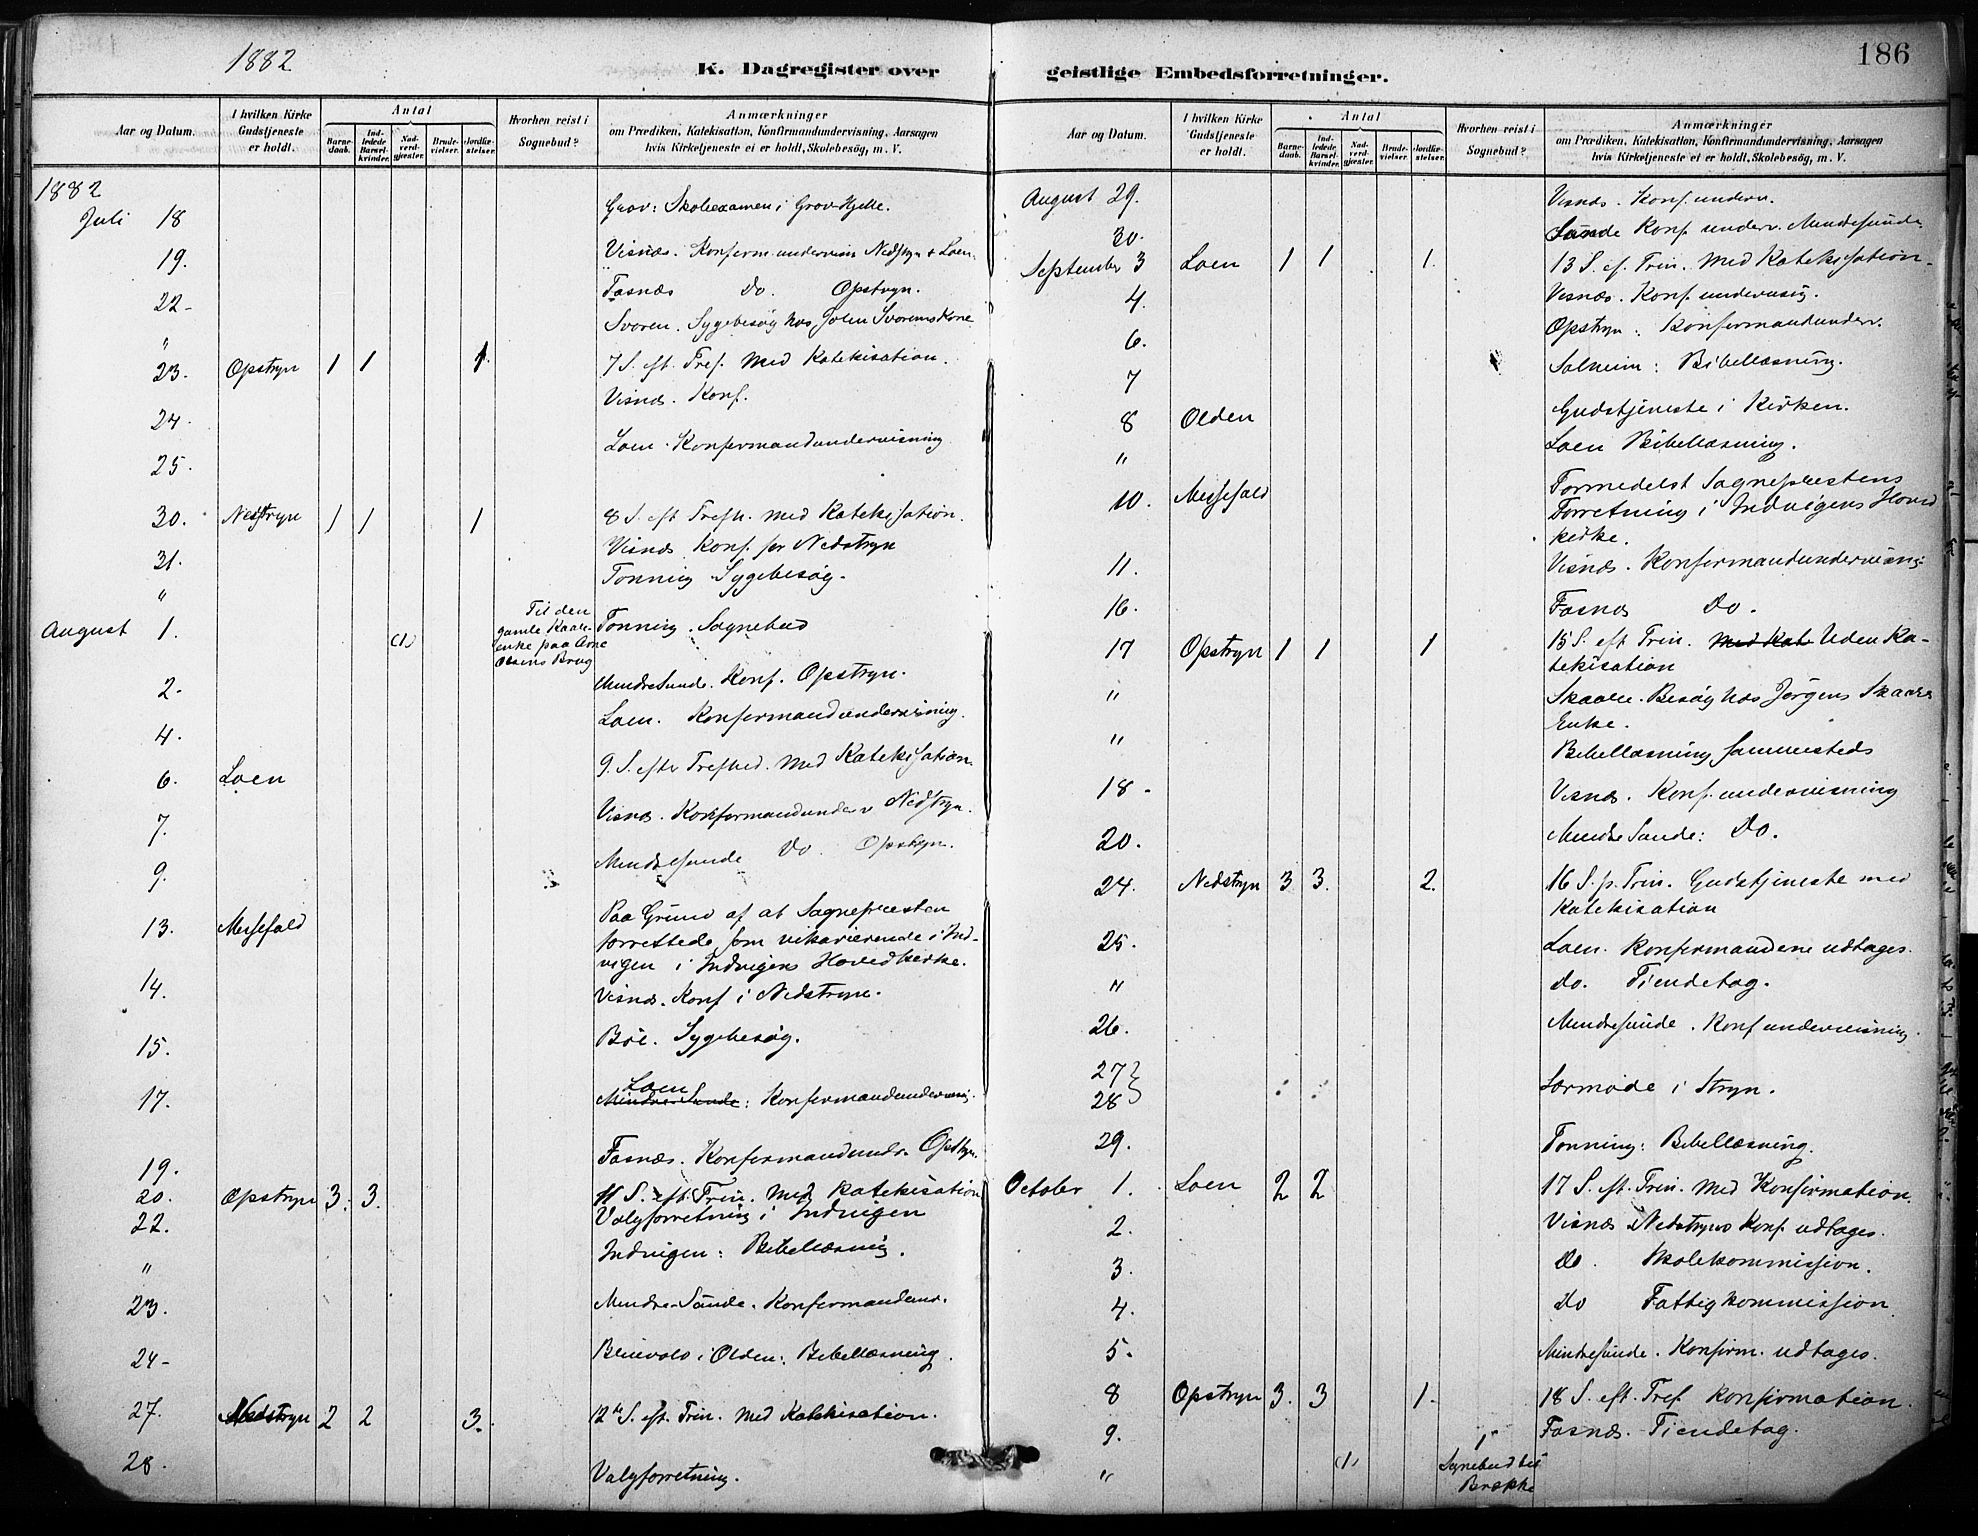 1882
K. Dagregister over
Aar og Datum.
I hvilken Kirke Gudstjeneste er holdt.
Antal
Barnedaab.
Indledede Barselkvinder.
Nadverdgjæster.
Brudevielser.
Jordfæstelser.
Hvorhen reist i Sognebud?
Anmærkninger
om Prædiken, Katekisation, Konfirmandundervisning, Aarsagen
hvis Kirketjeneste ei er holdt, Skolebesög, m. V.
1882
Juli 18 Grov: Skoleexamen i Grov Hjelle.
19. Visnæs. Konferm. undervisn Nedstryn & Loen.
22- Fosnæs Do. Opstryn.
" Svoren. Sygebesøg hos Svorens Kone
23. Opstryn 1 1 1 7 S. eft. Tref. med Katekisation.
24. Visnæs. Konf.
25. Loen. Konfermandundervisning
30. Nedstryn 1 1 1 8 S. eft Trefh. med Katekisation.
31. Visnæs Konf. for Nedstryn
" Tonning Sygebesøg.
August 1. (1) Til den
gamle
enke paa
Brug
Tonning. Sognebud
2. MindreSunde. Konf. Opstryn.
4. Loen. Konfermandundervisning.
6. Loen 9. S. efter Trefhed. med Katekisation.
7. Visnæs. Konfermandunderv Nedstryn.
9. Mindresunde Do. Opstryn.
13. Messefald Paa Grund af at Sognepresten
forrettede som vikarierende i Ind-
vigen i Indvigens Hovedkirke.
14. Visnæs. Konf i Nedstryn.
15. Böe. Sygebesøg.
17. Loen
Mindre Sunde: Konfermandundervisnig.
19. Fosnæs. Konfermandundr. Opstryn.
20. Opstryn 3. 3. 11 S. eft. Trin. med Katekisation
22. Valgforretning i Indvigen
" Indvigen: Bibellæsning.
23. Mindre-Sunde. Konfermandund.
24- i Olden: Bibellæsning.
27. Nedstryn 2 2 3. 12te S. eft. Trin. med Katekisation.
28. Valgforretning.
geistlige Embedsforretninger.
186
Aar og Datum.
I hvilken Kirke Gudstjeneste er holdt.
Antal
Barnedaab.
Indledede Barselkvinder.
Nadverdgjæster.
Brudevielser.
Jordfæstelser.
Hvorhen reist i Sognebud?
Anmærkninger
om Prædiken, Katekisation, Konfirmandundervisning, Aarsagen
hvis Kirketjeneste ei er holdt, Skolebesög, m. V.
August 29. Visnæs. Konf. underv.
30. Sunde Konf underv. Mindresunde
September 3 Loen 1 1 1. 13 S. ef. Trin. Med Katekisation.
4. Visnæs. Konf. undervisng.
6. Opstryn. Konfermandunderv.
7 Solheim: Bibellæsning.
8 Olden Gudstjeneste i Kirken.
" Loen Bibellæsning.
10. Messefald Formedelst Sogneprestens
Forretning i Indvigens Hoved
kirke.
11. Visnæs. Konfermandundervisng.
16. Fosnæs Do.
17 Opstryn 1 1 1 15 S. eft Trin. Med Kat Uden Ka-
tekisation
" Skaare. Besøg hos Jørgens Skaares
Enke.
" Bibellæsning sammesteds
18. Visnæs. Konf. undervisning
20. Mindre Sunde: Do.
24. Nedstryn 3 3. 2. 16 S. p. Trin. Gudstjeneste med
Katekisation
25. Loen. Konfermandene udtages.
" do. Tiendetog.
26. Mindresunde. Konf undervisning.
27
28 Lærmøde i Stryn.
29. Tonning: Bibellæsning.
October 1. Loen 2 2 17 S. eft. Trin. Med Konfirmation.
2. Visnæs Nedstryns Konf. udtages.
3. do. Skolekommission.
4. Do Fattigkommission
5. Mindresunde. Konfirm. udtages.
8 Opstryn 3. 3 1. 18 S. eft. Tref Konfirmation.
9. Fosnæs. Tiendetog.
" (1) Sognebud til
Brække